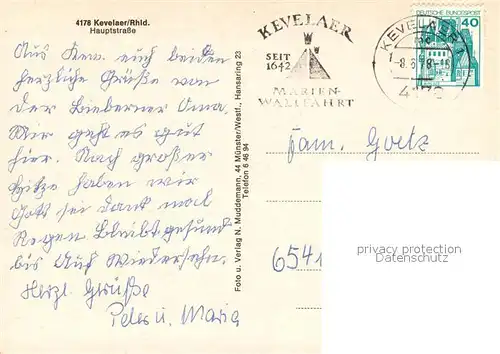 4178 Kevelaer/Rhld.
Hauptstraße
Aus Kew. euch beiden
herzliche Grüße von
der Lieberner Oma.
Mir geht es gut
hier. Nach großer
Hitze haben wir
Gott sei dank mal
Regen Bleibt gesund
bis Auf Wiedersehn.
Herzl. Grüße
Peter u. Maria
Foto u. Verlag N. Muddemann, 44 Münster/Westf., Hansaring 23
Telefon 6 46 94
KEVELAER
SEIT
1642
MARIEN-
WALLFAHRT
KEVELAER 1
DEUTSCHE BUNDESPOST
40
Fam. Goetz
6541
privacy protection
Datenschutz